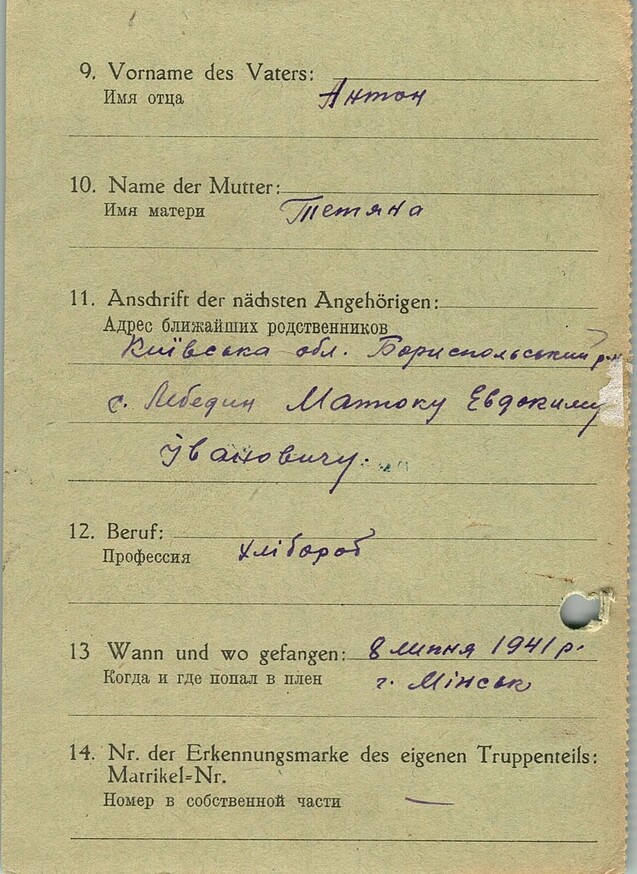 9. Vorname des Vaters:
Имя отца Антон
10. Name der Mutter:
Имя матери Тетяна
11. Anschrift der nächsten Angehörigen:
Адрес ближайших родственников
Київська обл. Бориспольський р-н
с. Лебедин Матюку Евдокиму
Івановичу.
12. Beruf:
Профессия хлібороб
13 Wann und wo gefangen: 8 липня 1941 р.
Когда и где попал в плен г. Мінськ
14. Nr. der Erkennungsmarke des eigenen Truppenteils:
Matrikel=Nr.
Номер в собственной части —